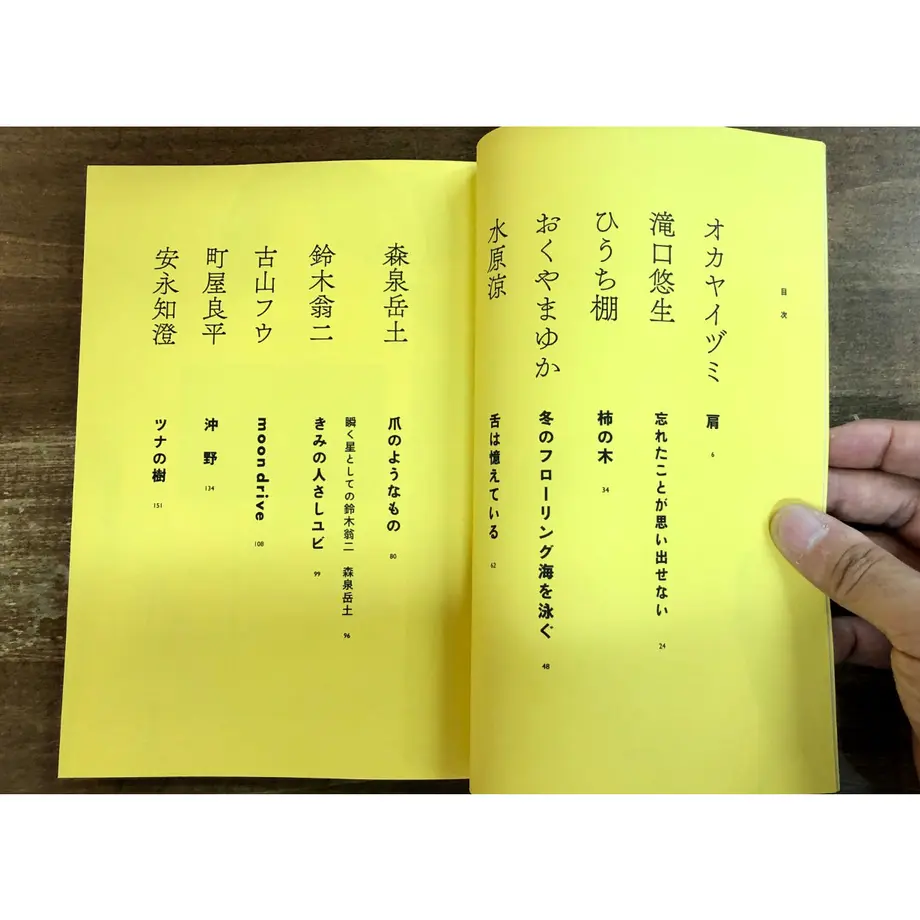 目次
オカヤイヅミ
肩
6
滝口悠生
忘れたことが思い出せない
24
ひうち棚
柿の木
34
おくやまゆか
冬のフローリング海を泳ぐ
48
水原涼
舌は憶えている
62
森泉岳土
爪のようなもの
80
瞬く星としての鈴木翁二 森泉岳土
96
鈴木翁二
きみの人さしユビ
99
古山フウ
moondrive
108
町屋良平
沖 野
134
安永知澄
ツナの樹
151